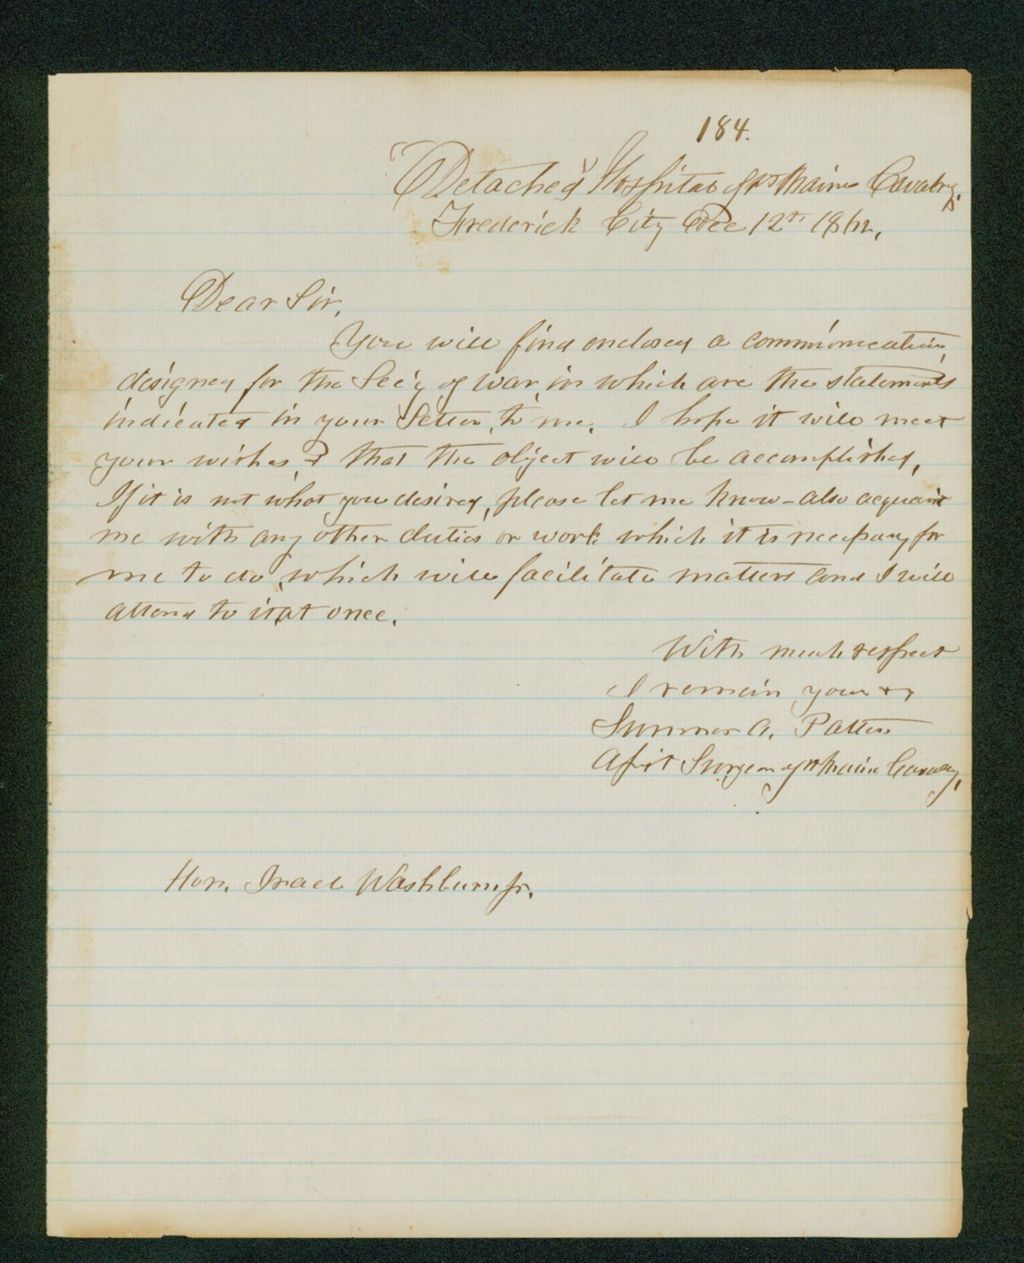 184.
"Detached" Hospital 1st Maine Cavalry.
Frederick City Dec 12th 1862.
Dear Sir,
You will find enclosed a communication,
designed for the Sec'y of War, in which are the statements
indicated in your letter, to me. I hope it will meet
your wishes, & that the object will be accomplished,
If it is not what you desired, please let me know - also acquaint
me with any other duties or work which it is necessary for
me to do, which will facilitate matters and I will
attend to it at once.
With much respect
I remain your &c
Sumner A. Patten
Asst Surgeon 1st Maine Cavalry,
Hon. Israel Washburn Jr.